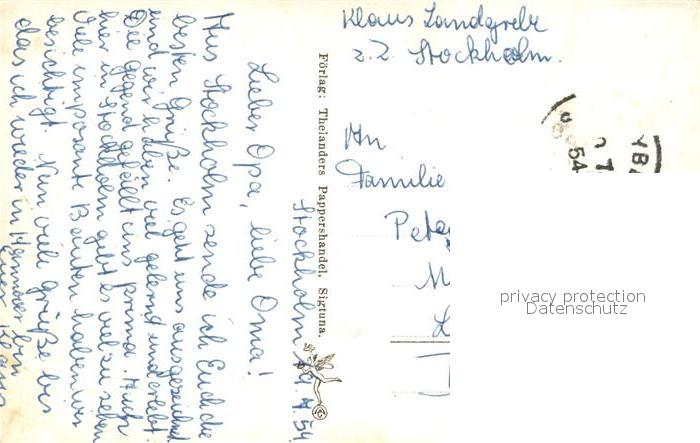 Klaus Landgrebe
z. Z. Stockholm.
An
Familie
Pete
M
L
Stockholm 9.7.54
Lieber Opa, liebe Oma!
Aus Stockholm sende ich Euch die
besten Grüße. Es geht uns ausgezeichnet
und wir haben viel gelernt und erlebt.
Die Gegend gefällt uns prima. Auch
hier in Stockholm gibt es viel zu sehen
Viele imposante Bauten haben wir
besichtigt. Nun viele Grüße bis
das ich wieder in Hannover bin
Euer Klaus
Förlag: Thelanders Pappershandel, Sigtuna.
54
privacy protection
Datenschutz